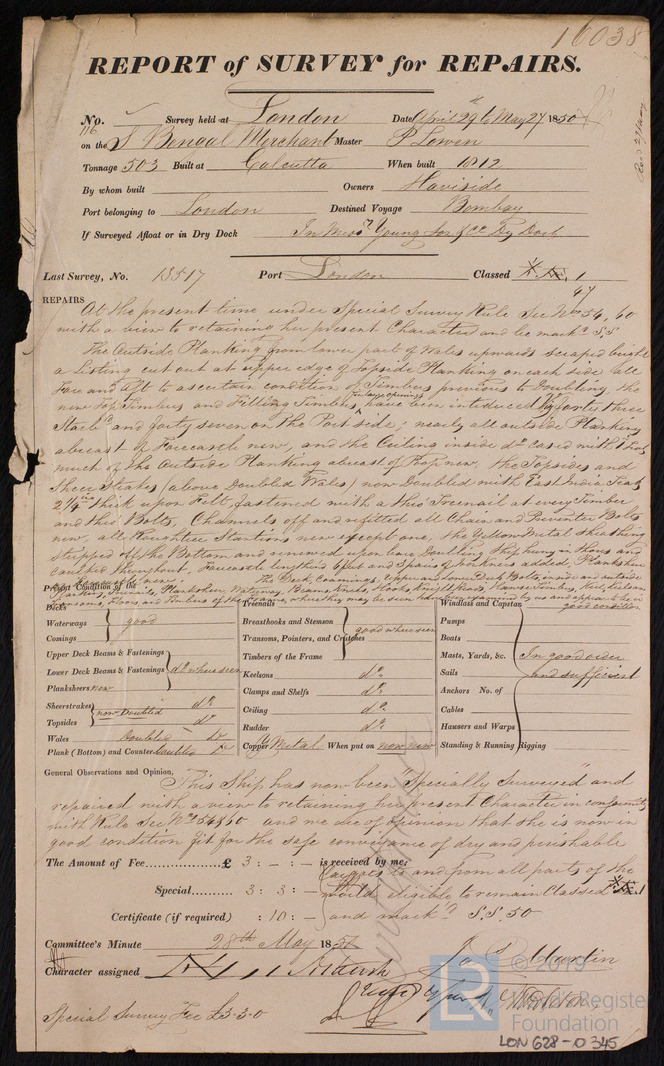 10038
REPORT of SURVEY for REPAIRS.
No. Survey held at London Date April 29 to May 27 1850
116 on the S Bengal Merchant Master P Lowen
Tonnage 503 Built at Calcutta When built 1812
By whom built Owners Haviside
Port belonging to London Destined Voyage Bombay
If Surveyed Afloat or in Dry Dock In Messrs Young Son & Co Dry Dock
Last Survey, No. 13517 Port London Classed 1
47
REPAIRS
At the present time under Special Survey Rule Sec Nos 54, 60
with a view to retaining her present Character and be mark'd S.S
The Outside Planking from lower part of Wales upwards scraped bright
a Listing cut out at upper edge of Topside Planking on each side all
Fore and Aft to ascertain condition of Timbers previous to Doubling the
new Top Timbers and Filling Timbers in large openings have been introduced three
Starbd and forty seven on the Port side; nearly all outside Planking
abreast of Forecastle new, and the Ceiling inside do cased with Teak
much of the Outside Planking abreast of Poop new, the Topsides and
three Strakes (above Doubled Wales) now Doubled with East India Teak
2 1/4 ins thick upon Felt, fastened with a thro' Treenail at every Timber
and thro' Bolts, Channels off and refitted all Chain and Preventer Bolts
new, all Roughtree Stantions new except one, the Yellow Metal sheathing
stripped off the Bottom and renewed upon bare Doubling Ship hung in Shores and
caulked throughout, Forecastle lengthened 6 feet and 3 pairs of Bulwarks added, Planksheer
new
The Deck, Coamings, Upper and Lower Deck Bolts, inside and outside
Planking, Treenails, Planksheer, Waterway, Beams, Knees, Hooks, Knightheads, Hawse Timbers, Keel, Keelson
Transoms, Floors, and Timbers of the Frame, where they may be seen have been examined by us and appear to be in
good condition
Present Condition of the
Decks
Waterways good
Comings
Upper Deck Beams & Fastenings
Lower Deck Beams & Fastenings do where seen
Planksheers new
Sheerstrakes now Doubled do
Topsides do
Wales Doubled do
Plank (Bottom) and Counter Doubled do
Treenails
Breasthooks and Stemson
Transoms, Pointers, and Crutches good where seen
Timbers of the Frame
Keelsons do
Clamps and Shelfs do
Ceiling do
Rudder do
Copper Y Metal When put on now new
Windlass and Capstan
Pumps
Boats
Masts, Yards, &c. In good order
Sails and sufficient
Anchors No. of
Cables
Hausers and Warps
Standing & Running Rigging
General Observations and Opinion,
This Ship has now been "Specially Surveyed" and
repaired with a view to retaining her present Character in conformity
with Rule Sec Nos 54 & 60 and we are of opinion that she is now in
good condition fit for the safe conveyance of dry and perishable
The Amount of Fee £ 3 : - : - is received by me,
Cargoes to and from all parts of the
Special 3 : 3 : - World eligible to remain Classed 1
Certificate (if required) : 10 : - and mark'd S.S. 50
Committee's Minute 28th May 1850
Jas Martin
Character assigned
Special Survey Fee £3-3-0
© 2019
Lloyd's Register
Foundation
LR
LON 628-0345